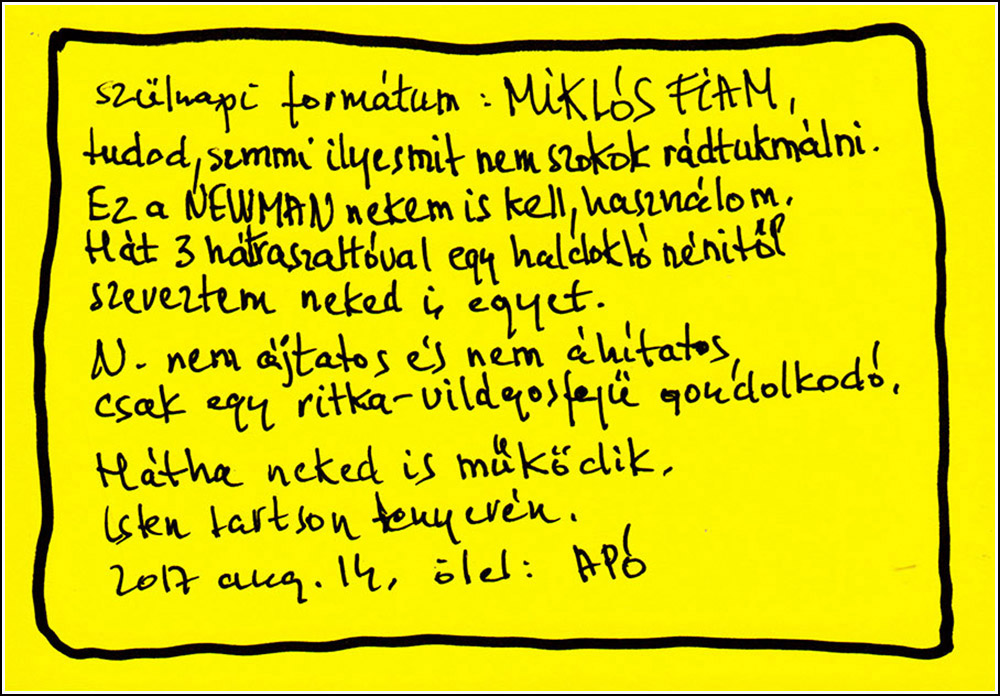 szülnapi formátum: MIKLÓS FIAM,
tudod, semmi ilyesmit nem szokok rádtukmálni.
Ez a NEWMAN nekem is kell, használom.
Hát 3 hátraszaltóval egy haldokló nénitől
szereztem neked is egyet.
N. nem ájtatos és nem áhítatos,
csak egy ritka-világosfejű gondolkodó.
Hátha neked is működik.
Isten tartson tenyerén.
2017 aug. 14, ölel: APÓ